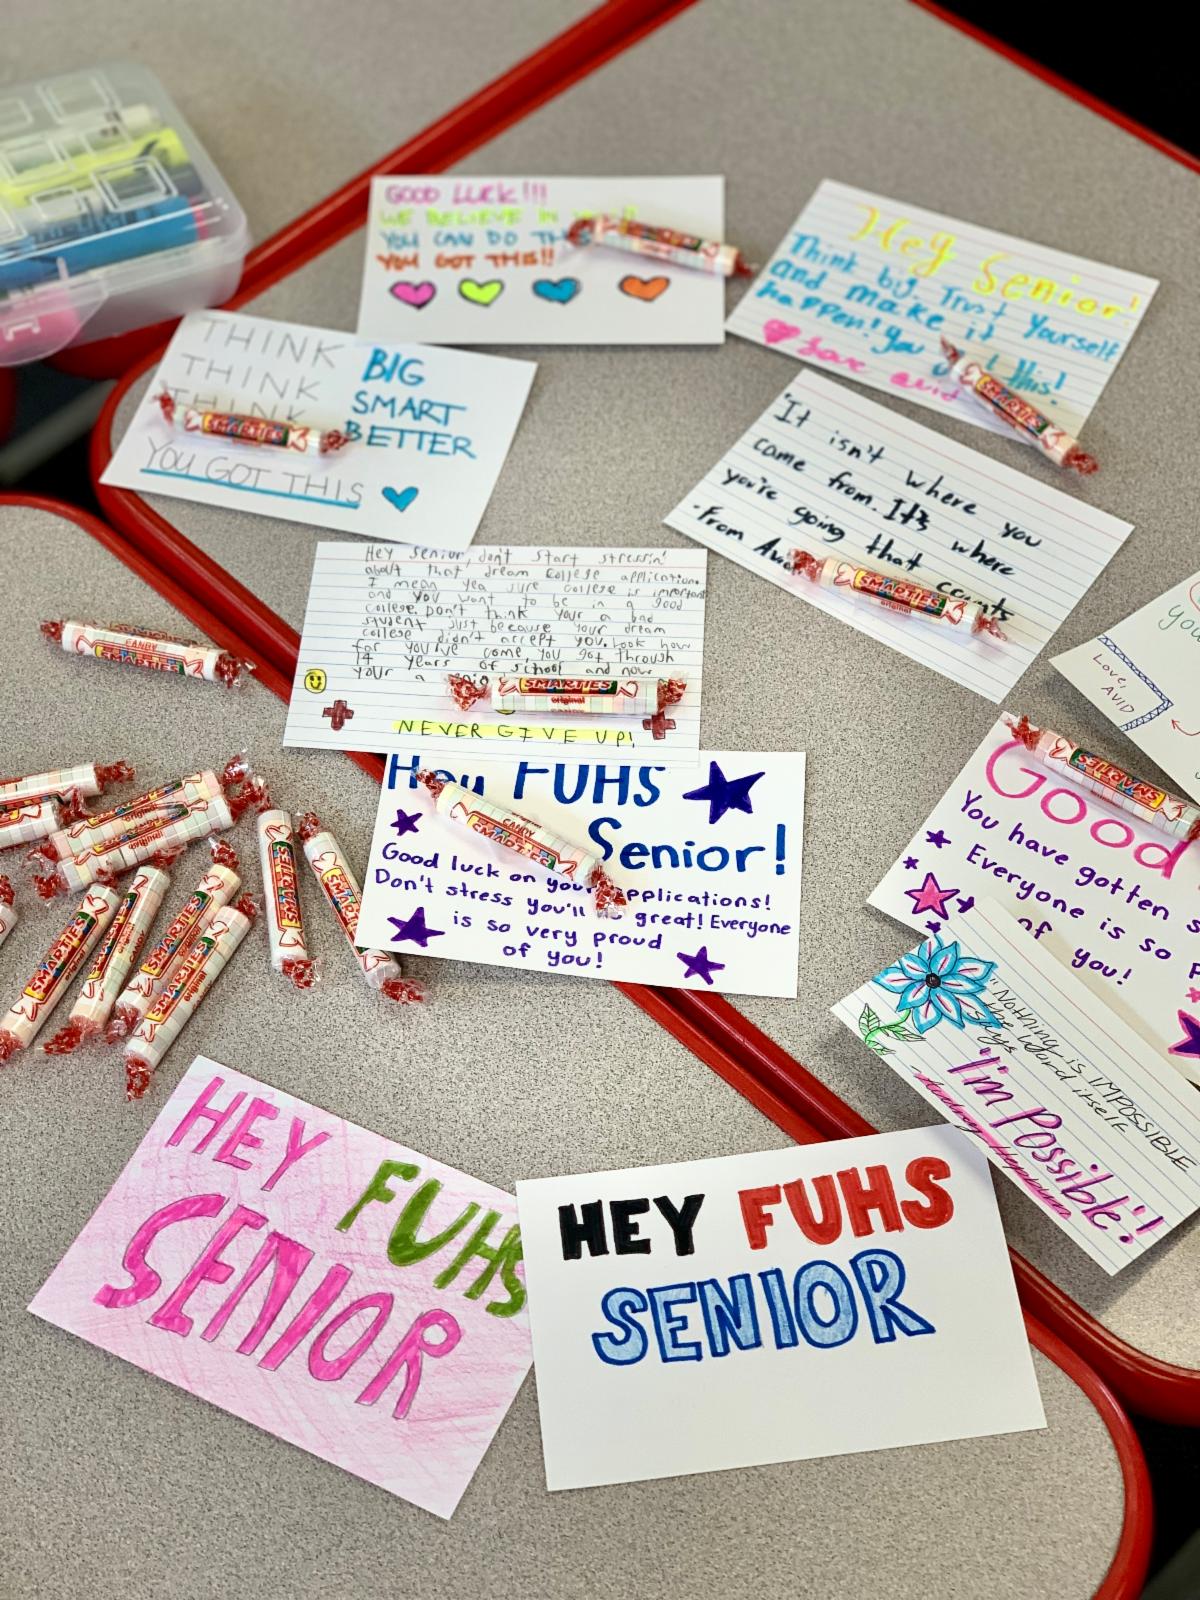 GOOD LUCK!!!
WE BELIEVE IN
YOU CAN DO THIS
YOU GOT THIS!!
Hey Senior!
Think big, Trust Yourself
and make it
happen! you this!
Love avid
THINK BIG
THINK SMART
THINK BETTER
YOU GOT THIS
SMARTIES
"It isn't where you
came from. It's where
you're going that counts
-From Avid
SMARTIES
original
Hey senior, don't start stressin'
about that dream college application.
I mean yea sure college is important
and you want to be in a good
college. Don't think your a bad
student just because your dream
college didn't accept you. Look how
far you've come, you got through
14 years of school and now
your a
SMARTIES
original
NEVER GIVE UP!
Love,
AVID
CANDY
SMARTIES
Hey FUHS
Senior!
Good luck on your applications!
Don't stress you'll great! Everyone
is so very proud
of you!
CANDY
SMARTIES
Good
SMARTIES
You have gotten
Everyone is so
of you!
"Nothing is IMPOSSIBLE
the word itself
says
'I'm Possible'!
SMARTIES
SMARTIES
SMARTIES
SMARTIES
original
HEY
FUHS
SENIOR
HEY FUHS
SENIOR